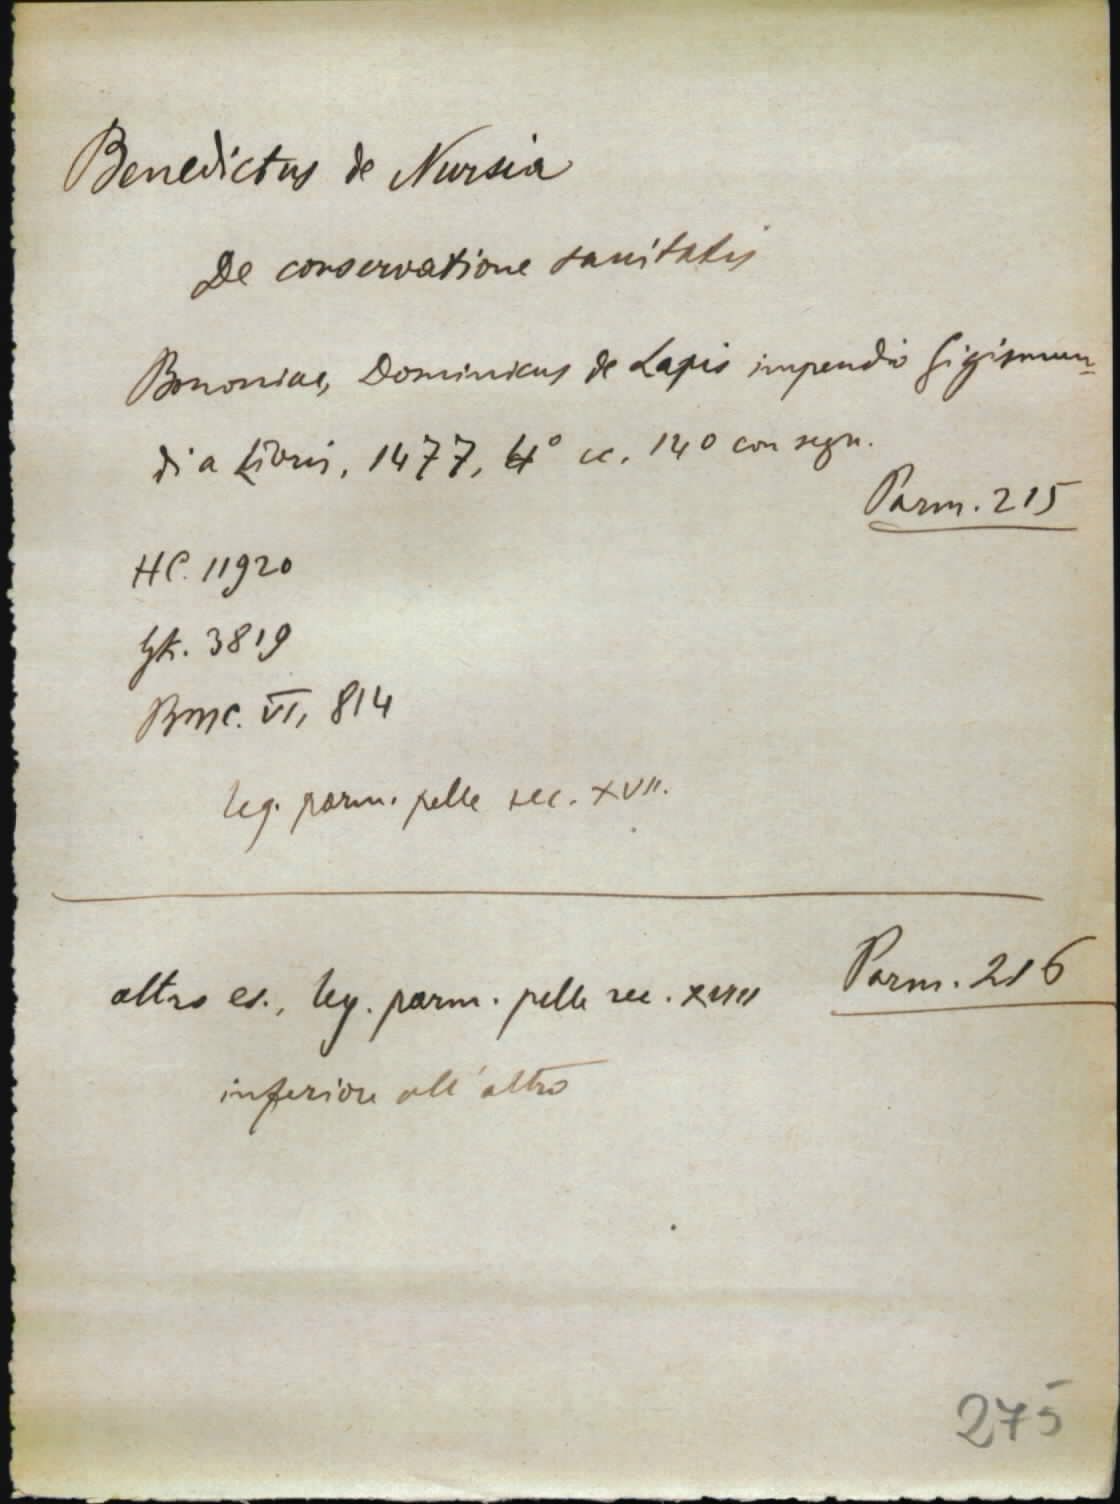 Benedictus de Nursia
De conservatione sanitatis
Bononiae, Dominicus de Lapis impendio Sigismun=
di a Libris, 1477, 4° cc. 140 con segn.
Parm. 215
HC. 11920
Gk. 3819
BMC. VI, 814
leg. parm. pelle sec. XVII.
altro es., leg. parm. pelle sec. XVIII
Parm. 216
inferiore all'altro
275